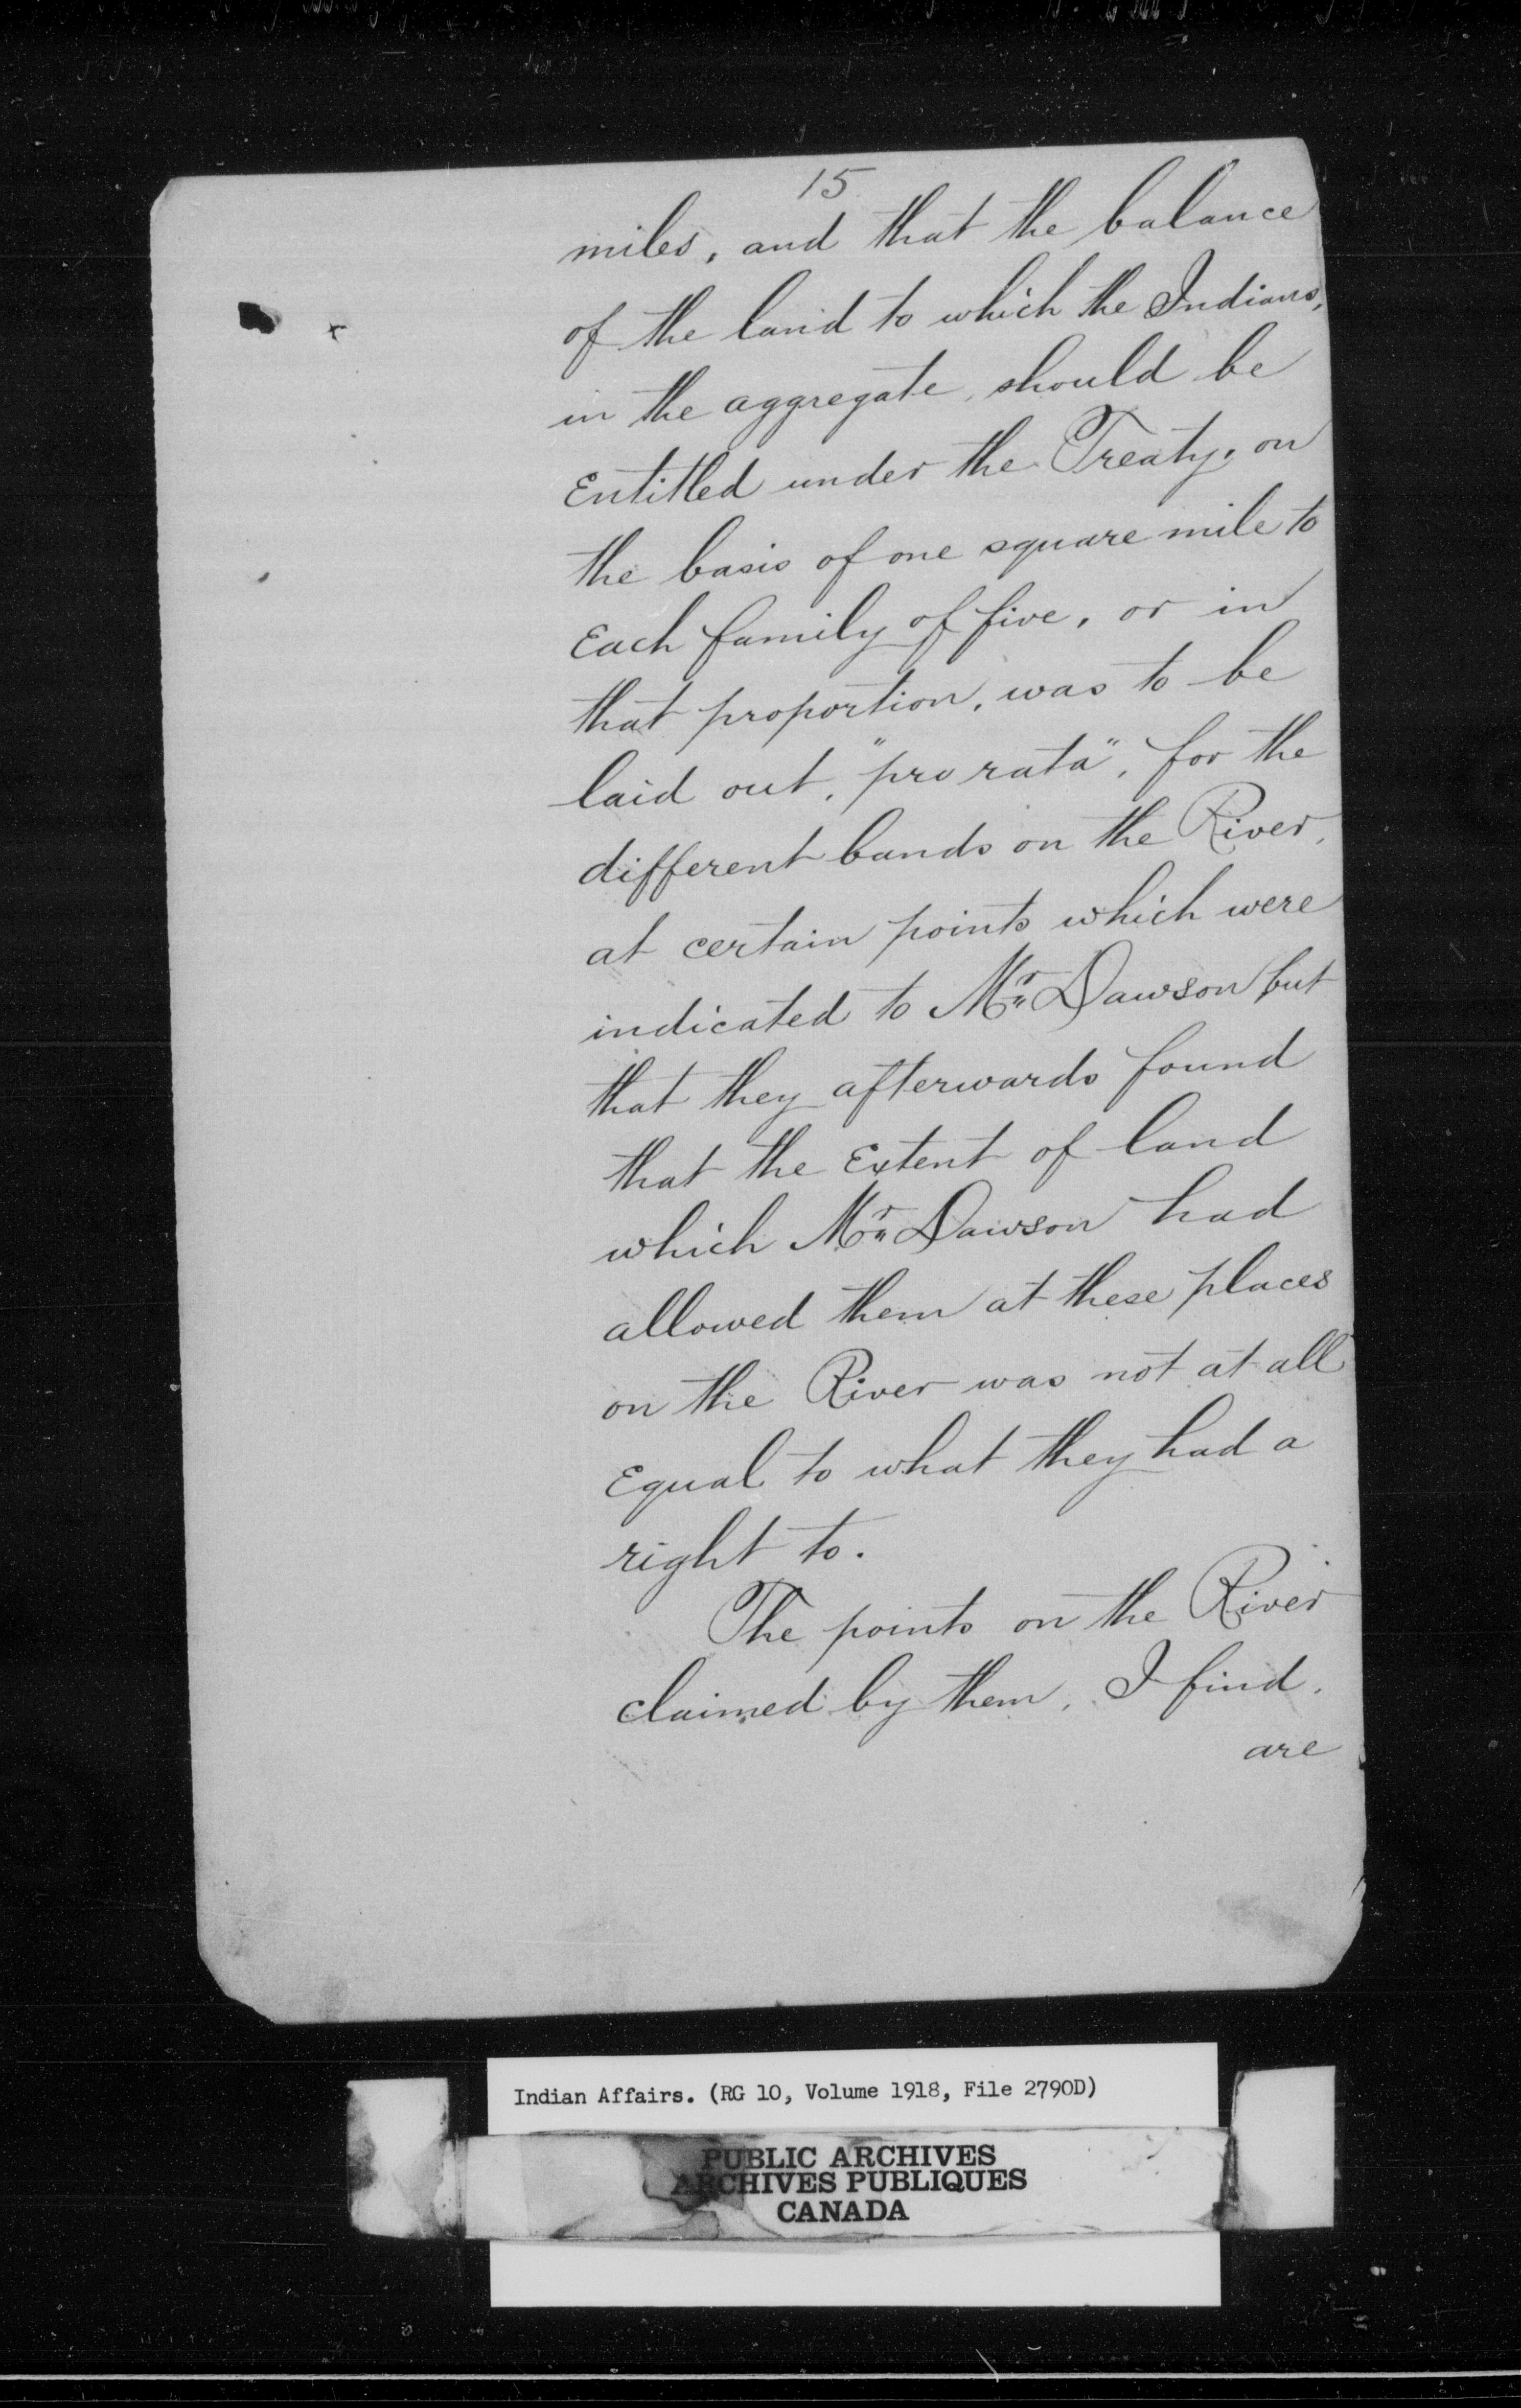 15
miles, and that the balance
of the land to which the Indians,
in the aggregate, should be
Entitled under the Treaty, on
the basis of one square mile to
Each family of five, or in
that proportion, was to be
laid out, "pro rata", for the
different bands on the River,
at certain points which were
indicated to Mr Dawson but
that they afterwards found
that the Extent of land
which Mr Dawson had
allowed them at these places
on the River was not at all
Equal to what they had a
right to.
The points on the River
claimed by them, I find,
are
Indian Affairs. (RG 10, Volume 1918, File 2790D)
PUBLIC ARCHIVES
ARCHIVES PUBLIQUES
CANADA